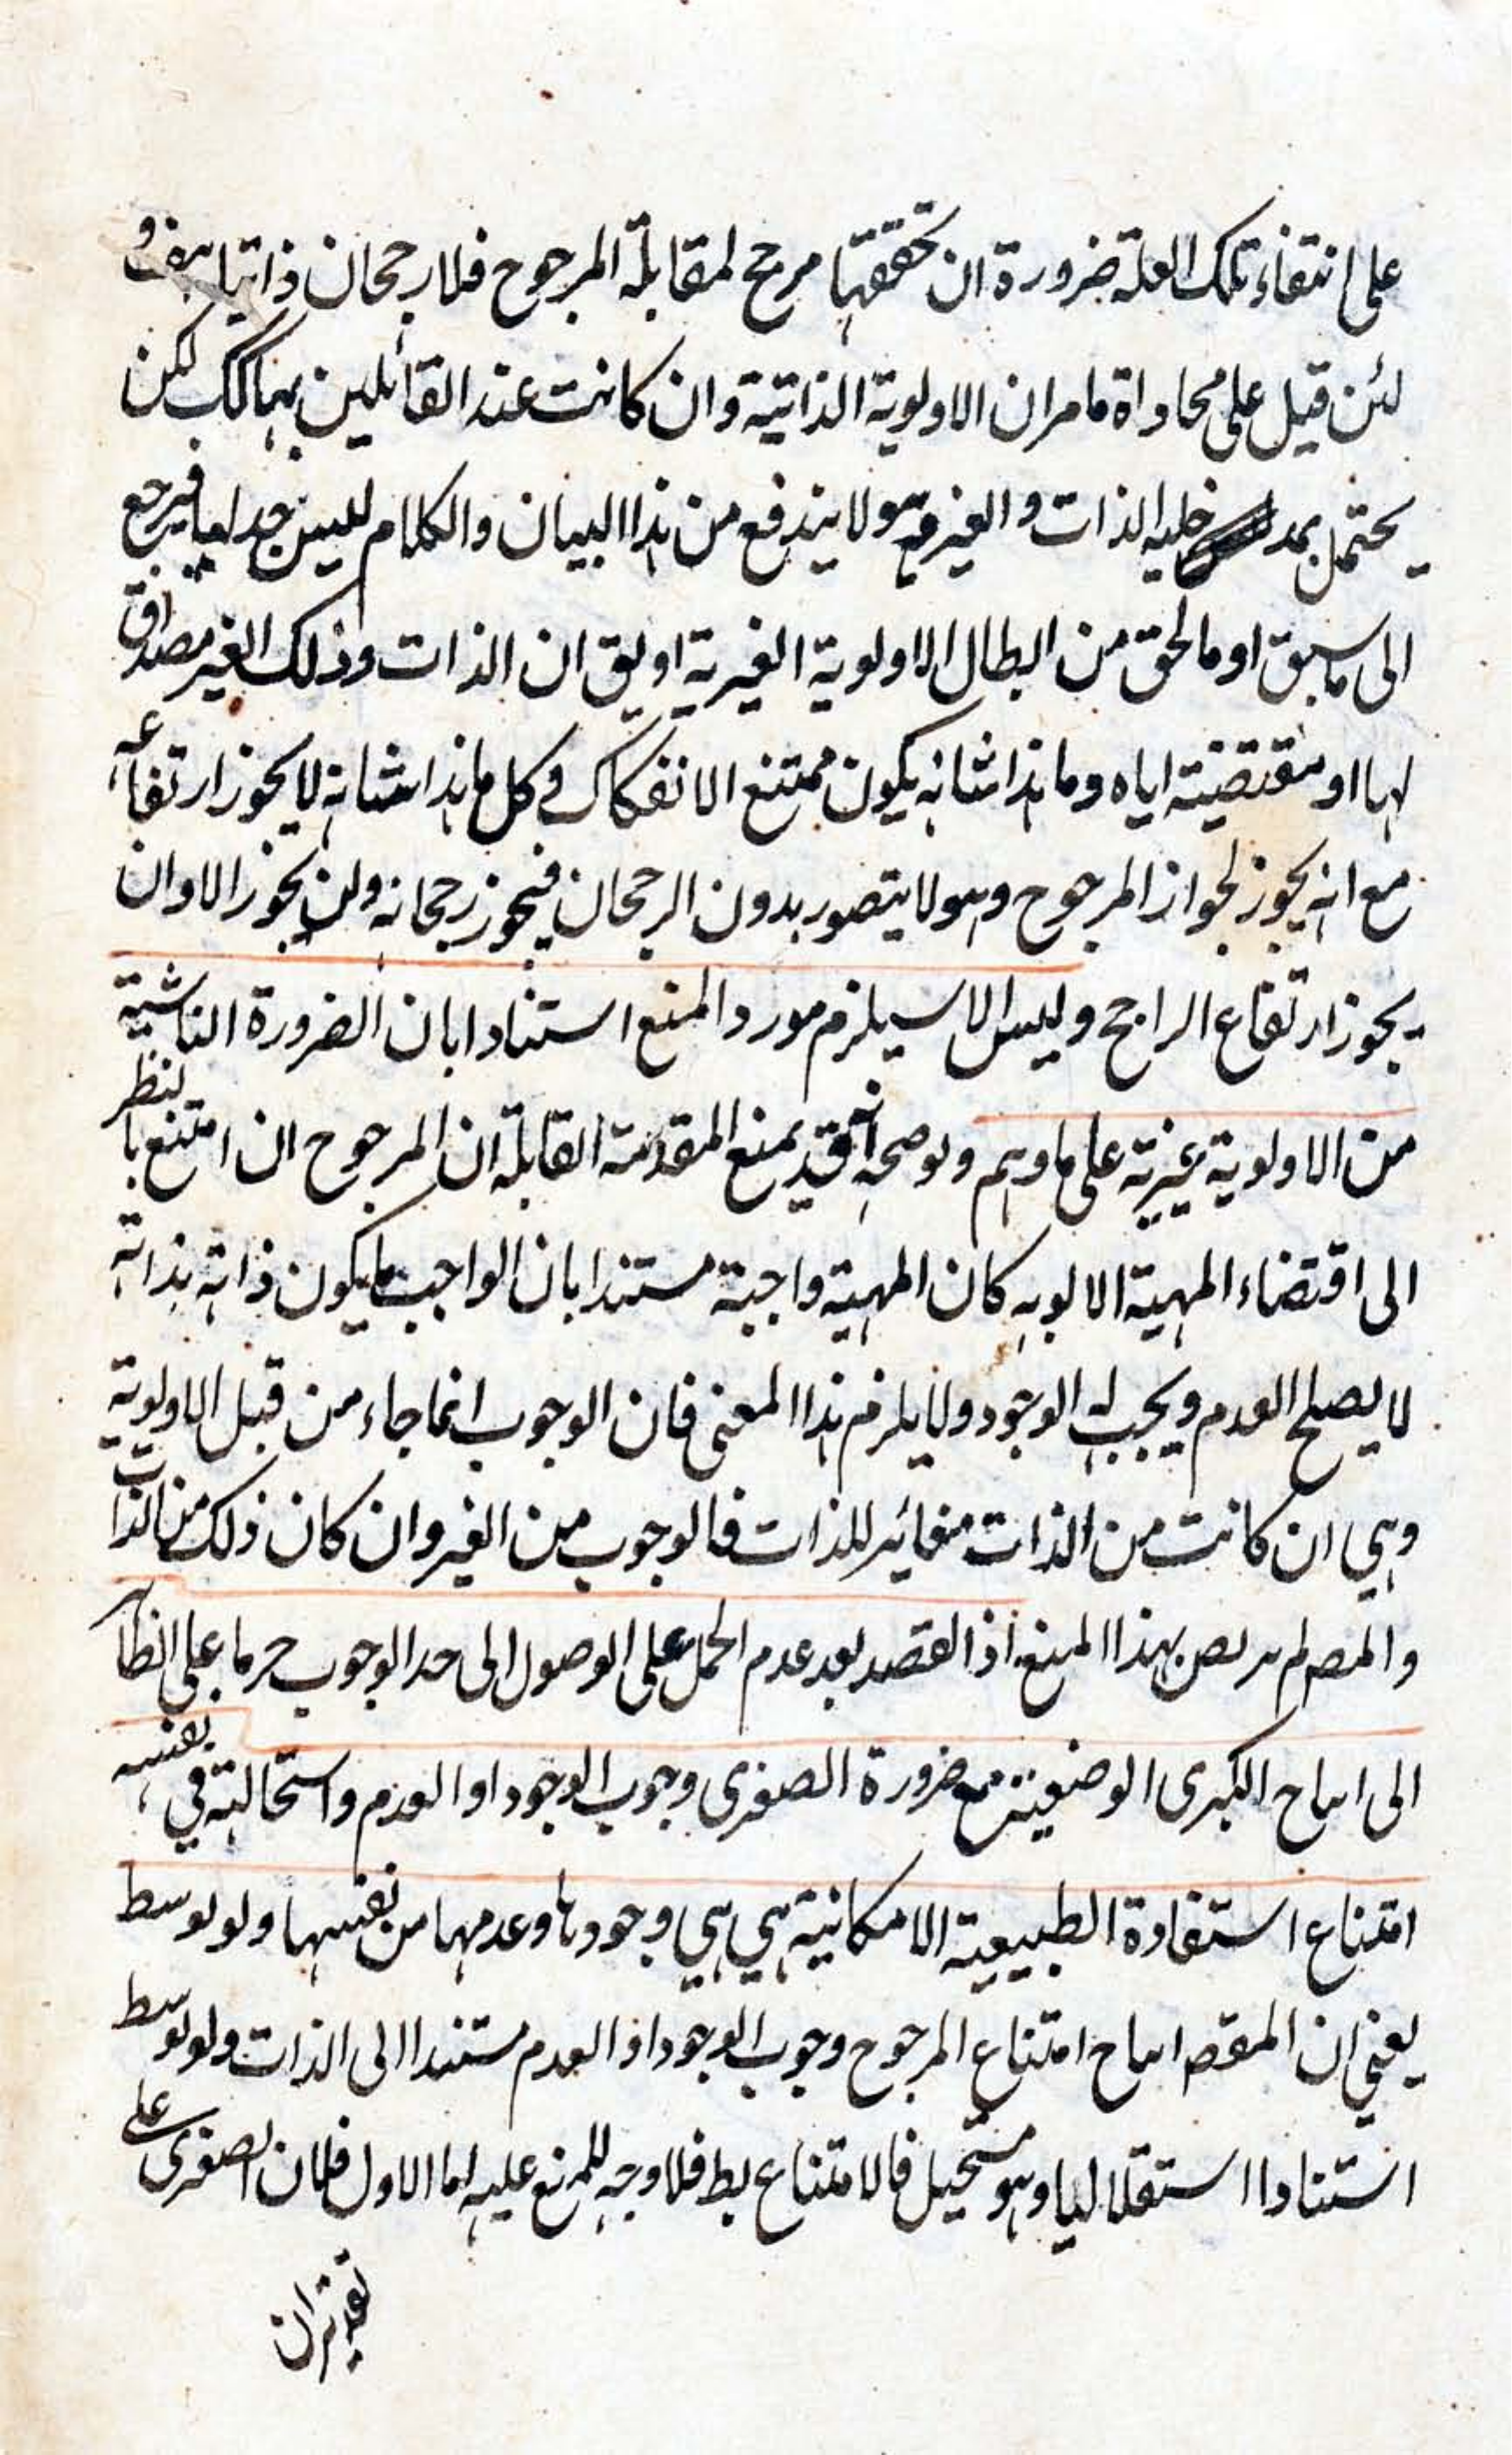 على انتفاء تلك العلة ضرورة ان تحققها مرجح لمقابلة المرجوح فلا رجحان ذاتيا هف و
لئن قيل على محاواة ما مر ان الاولوية الذاتية وان كانت عند القائلين بها كك لكن
يحتمل بمد خليه الذات والغير مع ولا يندفع من هذا البيان والكلام لليس جدليا فيرجع
الى ما سبق او ما لحق من ابطال الاولوية الغيرية او يق ان الذات وذلك الغير مصداق
لها او مقتضية اياه وما هذا شانه يكون ممتنع الانفكاك وكل ما هذا شانه لا يجوز ارتفاعه
مع انه يجوز لجواز المرجوح وهو لا يتصور بدون الرجحان فيجوز رجحانه ولن يجوز الا وان
يجوز ارتفاع الراجح وليس الا سيلزم مورد المنع استنادا بان الضرورة الناشية
من الاولوية غيرية على ما وهم ولوضحه انه قد يمنع المقدمة القابلة ان المرجوح ان امتنع بالنظر
الى اقتضاء المهية الالوبه كان المهية واجبة مستندا بان الواجب ما يكون ذاته بذاته
لا يصلح العدم ويجب له الوجود ولا يلزم هذا المعنى فان الوجوب انما جاء من قبل الاولوية
وهي ان كانت من الذات مغائر للذات فالوجوب من الغير وان كان ذلك من الذات
والمصم لم بهذا المنع اذ القصد بعد عدم الحمل على الوصول الى حد الوجوب حرما على الظاهر
الى اساح الكبرى الوضعية مع ضرورة الصغرى وجوب الوجود او العدم واستحالته في نفسه
امتناع استفادة الطبيعية الامكانية هي هي وجودها وعدمها من نفسها ولو لوسط
يعني ان المقصد اساح امتناع المرجوح وجوب الوجود او العدم مستندا الى الذات ولو لوسط
استنادا استقلاليا وهو مستحيل فالامتناع بط فلا وجه للمنع عليه اما الاول فلان الصغرى على
تقديران